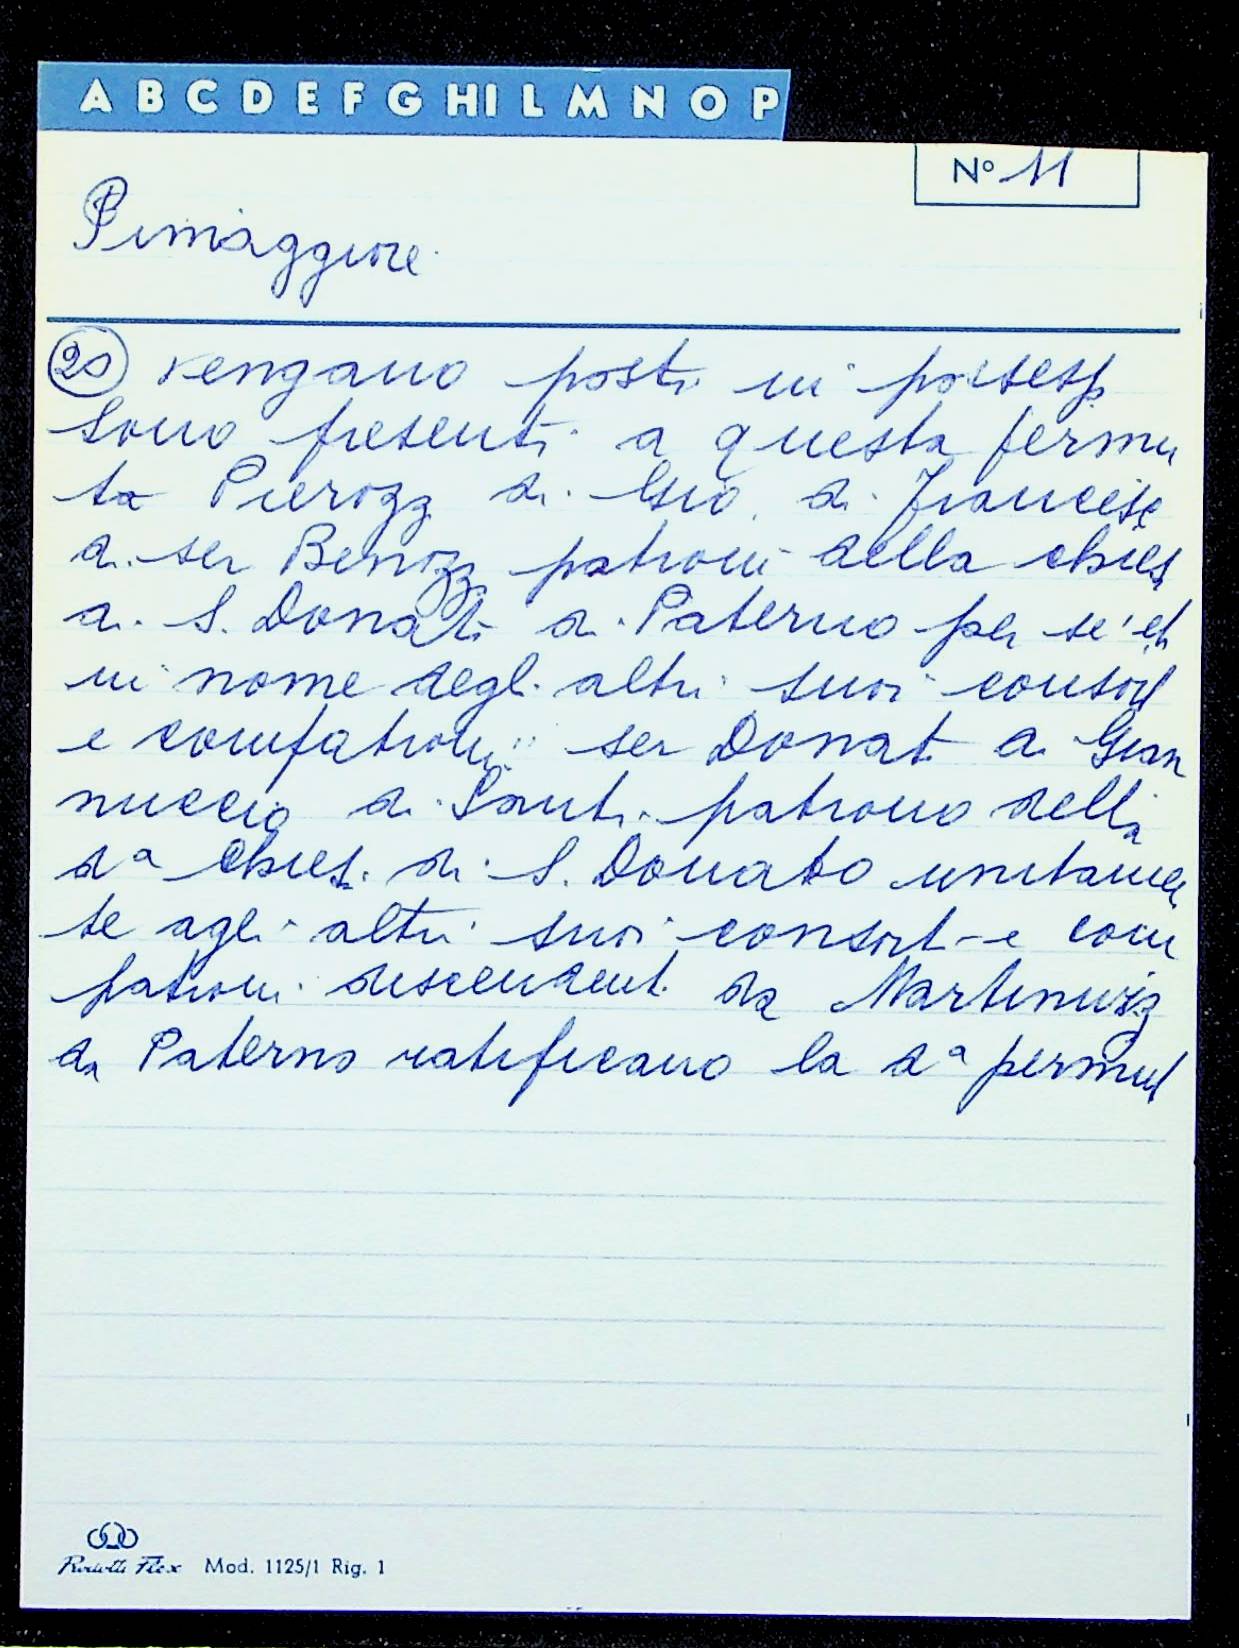 A B C D E F G HI L M N O P
Nº 11
Pimaggiore
20 vengano posti in possess
sono presenti a questa permu
ta Pierozz di Gio. di Francesc
di ser Benozz patroni della chies
di S. Donato di Paterno per se' et
in nome degli altri suoi consort
e compatroni: ser Donat di Gian
nuccio di Santi patrono della
dª chies. di S. Donato unitamen
te agli altri suoi consort e com
patroni discendent da Martinozz
da Paterno ratificano la dª permut
Flex Mod. 1125/1 Rig. 1